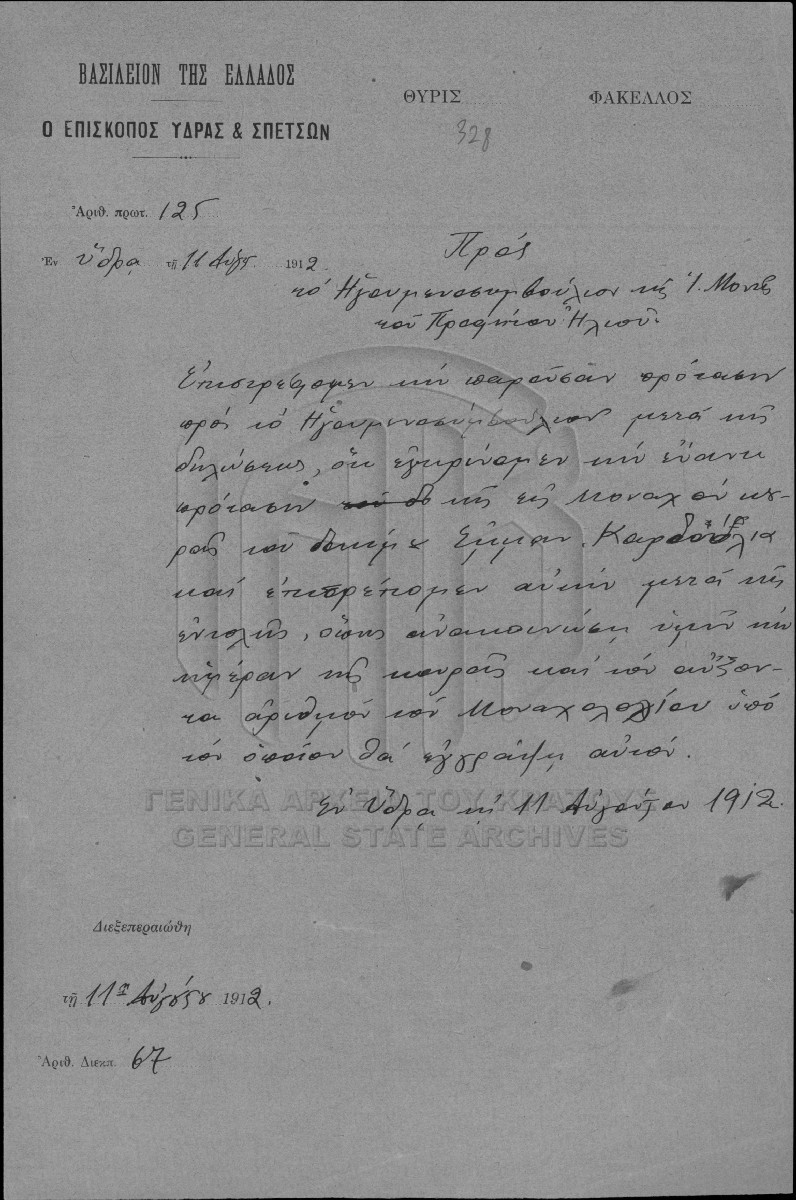 ΒΑΣΙΛΕΙΟΝ ΤΗΣ ΕΛΛΑΔΟΣ
Ο ΕΠΙΣΚΟΠΟΣ ΥΔΡΑΣ & ΣΠΕΤΣΩΝ
ΘΥΡΙΣ
ΦΑΚΕΛΛΟΣ
328
Ἀριθ. πρωτ. 125
Ἐν Ὕδρᾳ τῇ 11 Αὐγ. 1912.
Πρός
τό Ἡγουμενοσυμβούλιον τῆς Ἱ. Μονῆς
τοῦ Προφήτου Ἠλιού.
Ἐπιστρέφομεν τήν παροῦσαν πρότασιν
πρός τό Ἡγουμενοσυμβούλιον μετά τῆς
δηλώσεως, ὅτι ἐγκρίνομεν τήν
πρότασιν τῆς εἰς Μοναχόν κου-
ρᾶς τοῦ δοκίμου Ἐμμαν.
καί ἐπιτρέπομεν αὐτήν μετά τῆς
ἐντολῆς, ὅπως ἀνακοινώσῃ ἡμῖν τήν
ἡμέραν τῆς κουρᾶς καί τόν αὔξον-
τα ἀριθμόν τοῦ Μοναχολογίου ὑπό
τόν ὁποῖον θά ἐγγράψῃ αὐτόν.
Ἐν Ὕδρᾳ τῇ 11 Αὐγούστου 1912.
ΓΕΝΙΚΑ ΑΡΧΕΙΑ ΤΟΥ ΚΡΑΤΟΥΣ
GENERAL STATE ARCHIVES
Διεξεπεραιώθη
τῇ 11ῃ Αὐγούστου 1912.
Ἀριθ. Διεκπ. 67